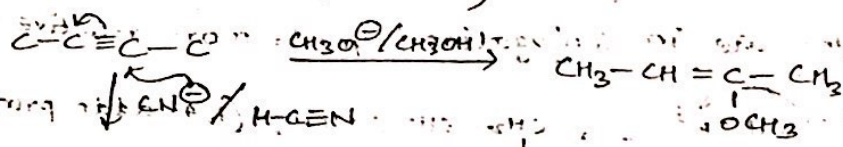 C-C≡C-C CH3O⊖/CH3OH CH3-CH=C-CH3
OCH3
CN⊖/H-C≡N